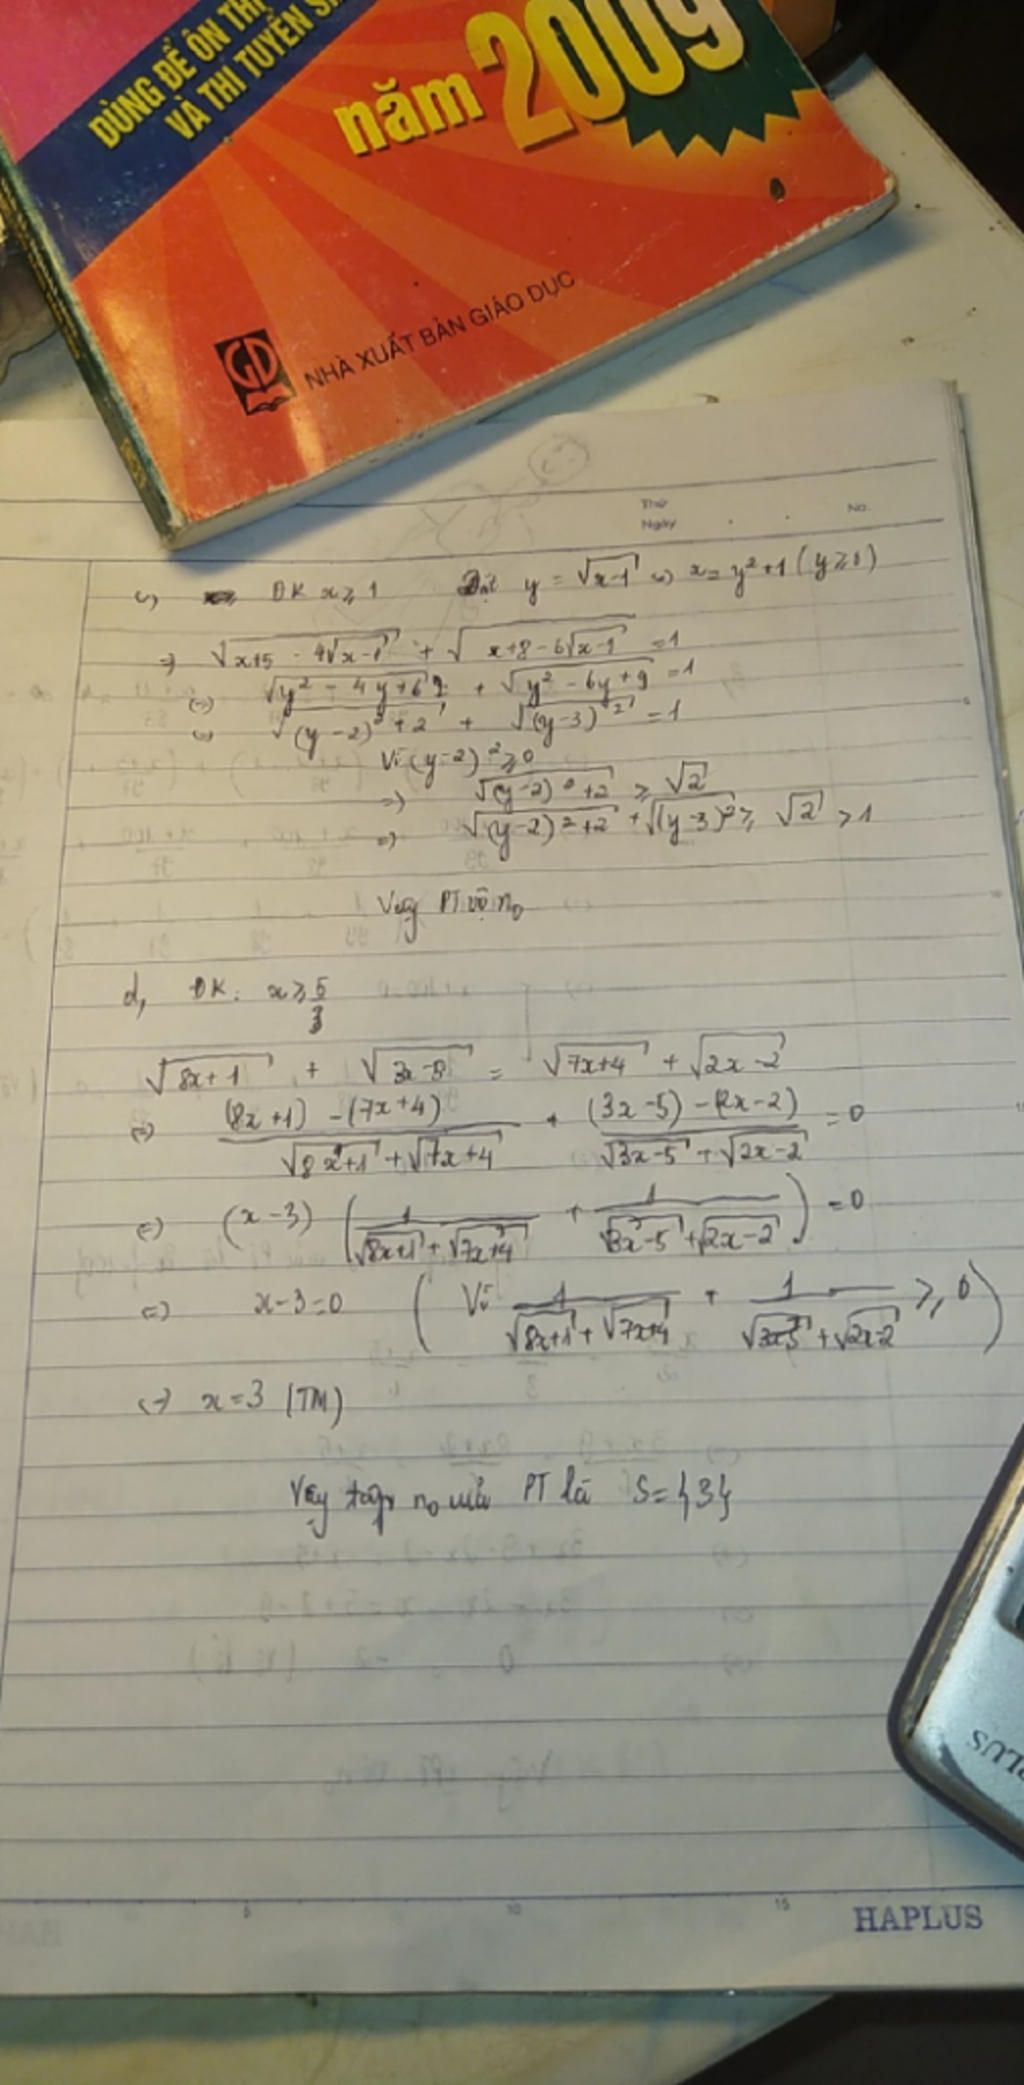 DÙNG ĐỂ ÔN THI
VÀ THI TUYỂN
năm 2009
GD
NHÀ XUẤT BẢN GIÁO DỤC
Thứ
Ngày
No.
c, ĐK x ≥ 1 Đặt y = √(x-1) ⇔ x = y² + 1 (y ≥ 0)
⇒ √(x+5 - 4√(x-1)) + √(x+8 - 6√(x-1)) = 1
⇔ √(y² - 4y + 6) + √(y² - 6y + 9) = 1
⇔ √((y-2)² + 2) + √((y-3)²) = 1
Vì (y-2)² ≥ 0
⇒ √((y-2)² + 2) ≥ √2
⇒ √((y-2)² + 2) + √((y-3)²) ≥ √2 > 1
Vậy PT vô n₀
d, ĐK: x ≥ 5/3
√(8x+1) + √(3x-5) = √(7x+4) + √(2x-2)
⇔ ((8x+1) - (7x+4))/(√(8x+1) + √(7x+4)) + ((3x-5) - (2x-2))/(√(3x-5) + √(2x-2)) = 0
⇔ (x-3) (1/(√(8x+1) + √(7x+4)) + 1/(√(3x-5) + √(2x-2))) = 0
⇔ x-3=0 (Vì 1/(√(8x+1) + √(7x+4)) + 1/(√(3x-5) + √(2x-2)) ≥ 0)
⇔ x=3 (TM)
Vậy tập n₀ của PT là S={3}
5 10 15
HAPLUS